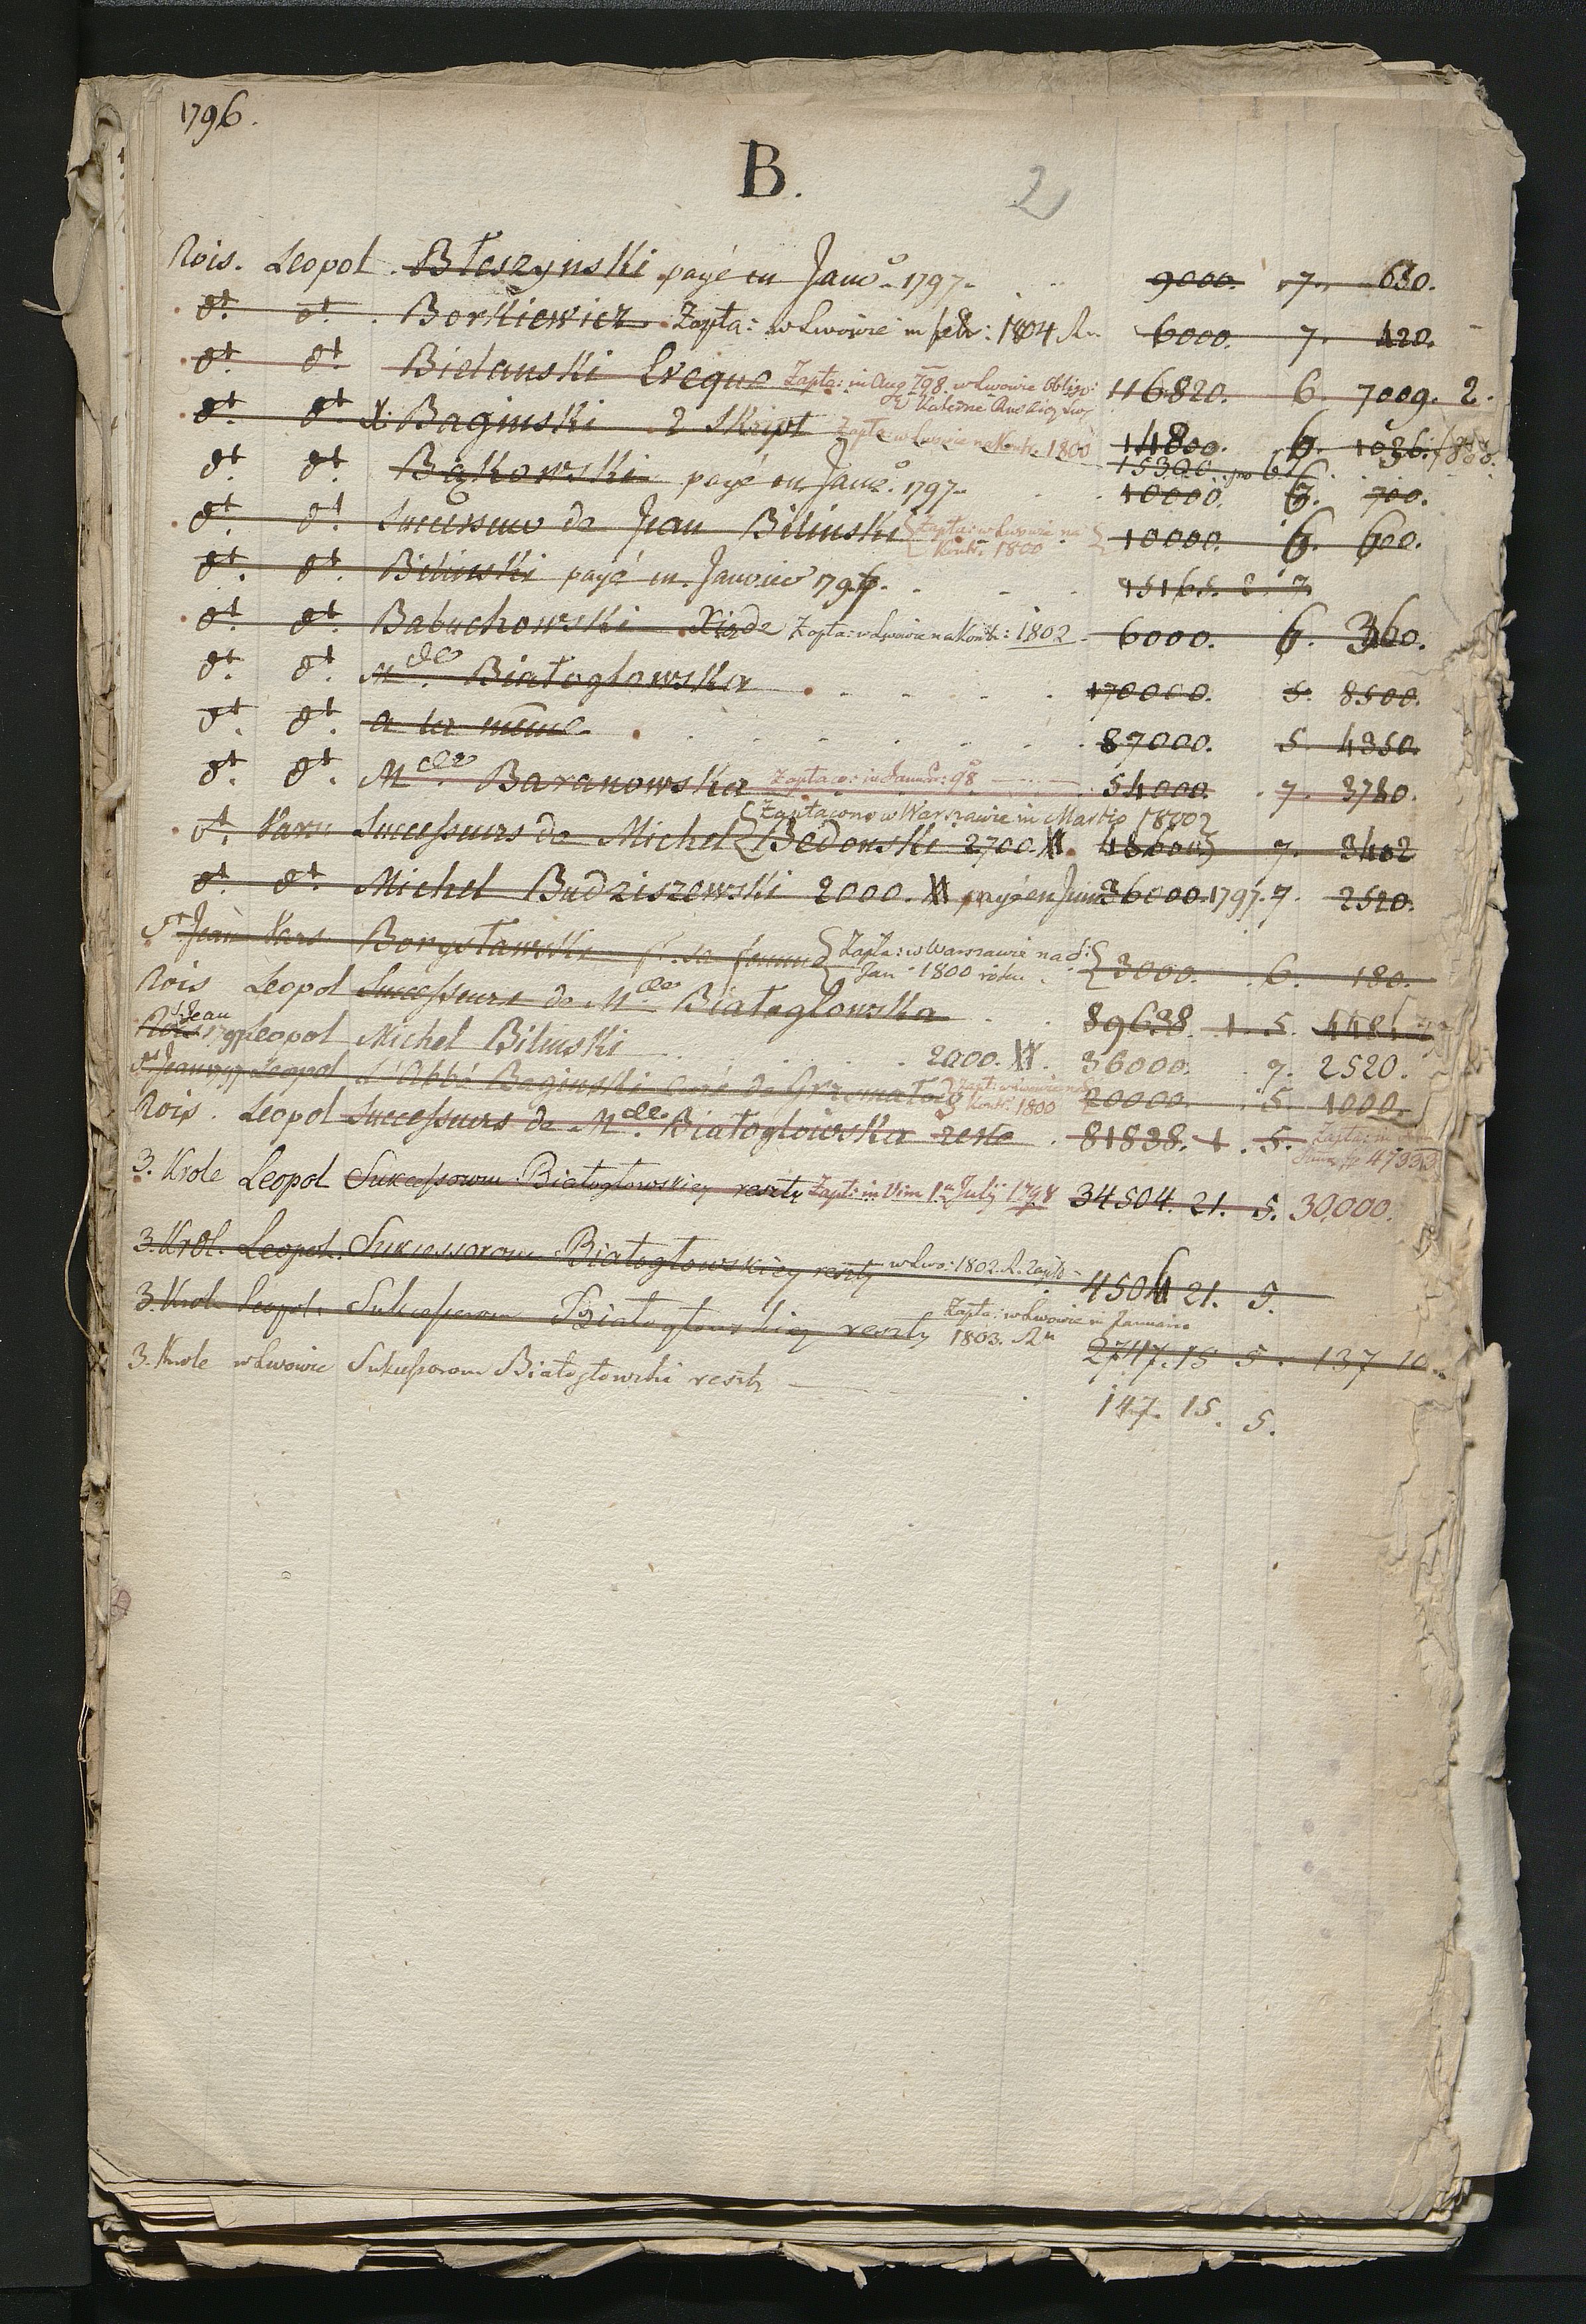 1796.
B.
2
Rois. Leopol. Błeszynski payé en Janv. 1797. 9000. 7. 630.
dt. dt. Borkiewicz Zapła: w Lwowie in febr: 1804 R. 6000. 7. 420.
dt. dt. Bielanski Eveque Zapła: in Aug 798 w Lwowie obligo: 116820. 6. 7009. 2.
dt. dt. X. Baginski 2 Skript Zapła: w Lwowie na Kontr. 1800 14800. 6. 1036.
15300. po 6.
dt. dt. Bąkowski payé en Janv. 1797. 10000. 7. 700.
dt. dt. Succession de Jean Bilinski Zapła: w Lwowie na Kontr. 1800 10000. 6. 600.
dt. dt. Bilinski payé en Janvier 1797. 15165. 2. 7.
dt. dt. Babuchowski Xiądz Zapła: w Lwowie na Kontr: 1802 6000. 6. 360.
dt. dt. Mde. Białogłowska 170000. 5. 8500.
dt. dt. a la même 87000. 5. 4350.
dt. dt. Mde. Baranowska Zapłaco: in Januar: 98 54000. 7. 3780.
Zapłacono w Warszawie in Martio 1800
dt. Vars. Successeurs de Michel Bedonski 2700. 48600 7. 3402
dt. dt. Michel Budziszewski 2000. payé en Juin 36000. 1797. 7. 2520.
St Jean Vars. Borysławski sa femme Zapła: w Warszawie na S: Jan 1800 roku 3000. 6. 180.
Rois Leopol Successeurs de Mde Białogłowska 89638. 1. 5.
St Jean
Rois 1797 Leopol Michel Bilinski 2000. 36000. 7. 2520.
St Jean 1797 Leopol L'Abbé Baginski curé de Zapł: w Lwowie na Kontr. 1800 20000. 5. 1000.
Rois. Leopol Successeurs de Mde. Białogłowska reste 81838. 1. 5.
3. Krole Leopol Sukcessorom Białogłowskiey reszty Zapł: in Vim 1a July 1798 34504. 21. 5. 30,000.
3. Król. Leopol. Sukcessorom Białogłowskiey reszty w Lwo: 1802. R. Zapło 4504 21. 5.
3. Krole Leopol. Sukcessorom Białogłowskiey reszty Zapła: w Lwowie in Januario 1803. Ru 2747. 15 5. 137 10.
3. Krole w Lwowie Sukcessorom Białogłowski reszty 147. 15. 5.